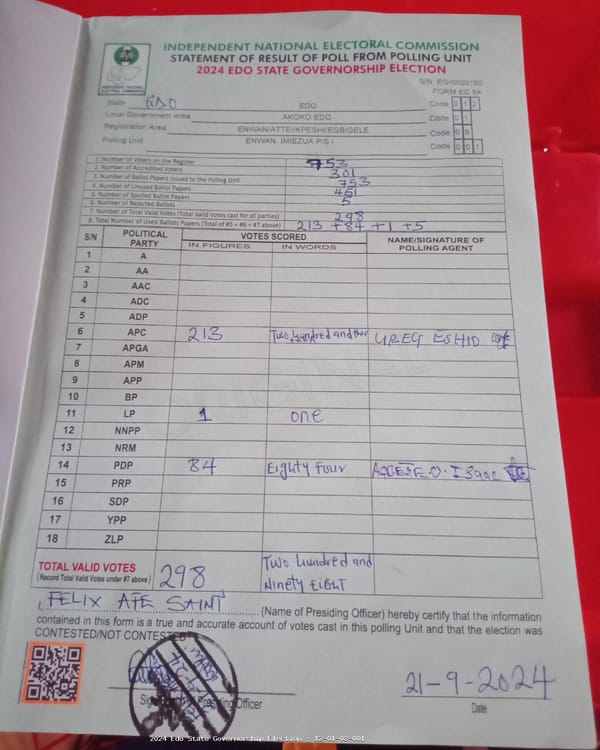 INDEPENDENT NATIONAL ELECTORAL COMMISSION
STATEMENT OF RESULT OF POLL FROM POLLING UNIT
2024 EDO STATE GOVERNORSHIP ELECTION
INDEPENDENT NATIONAL ELECTORAL COMMISSION
S/N. EG/0000160
FORM EC 8A
State EDO EDO Code 0 1 2
Local Government Area AKOKO EDO Code 0 1
Registration Area ENWAN/ATTE/IKPESHI/EGBIGELE Code 0 8
Polling Unit ENWAN, IMIEZUA P/S I Code 0 0 1
1. Number of Voters on the Register 753
2. Number of Accredited Voters 301
3. Number of Ballot Papers Issued to the Polling Unit 753
4. Number of Unused Ballot Papers 451
5. Number of Spoiled Ballot Papers
6. Number of Rejected Ballots 5
7. Number of Total Valid Votes (Total Valid Votes cast for all parties) 298
8. Total Number of Used Ballots Papers (Total of #5 + #6 + #7 above) 213 +84 +1 +5
S/N POLITICAL PARTY VOTES SCORED NAME/SIGNATURE OF POLLING AGENT
IN FIGURES IN WORDS
1 A
2 AA
3 AAC
4 ADC
5 ADP
6 APC 213 Two hundred and UREG ESHIO
7 APGA
8 APM
9 APP
10 BP
11 LP 1 one
12 NNPP
13 NRM
14 PDP 84 Eighty Four O. Isaac
15 PRP
16 SDP
17 YPP
18 ZLP
TOTAL VALID VOTES
(Record Total Valid Votes under #7 above) 298 Two hundred and Ninety Eight
I, FELIX AFE SAINT (Name of Presiding Officer) hereby certify that the information
contained in this form is a true and accurate account of votes cast in this polling Unit and that the election was
CONTESTED/NOT CONTESTED
Presiding Officer
21-9-2024
Date
2024 Edo State Governorship Election : 12-01-08-001